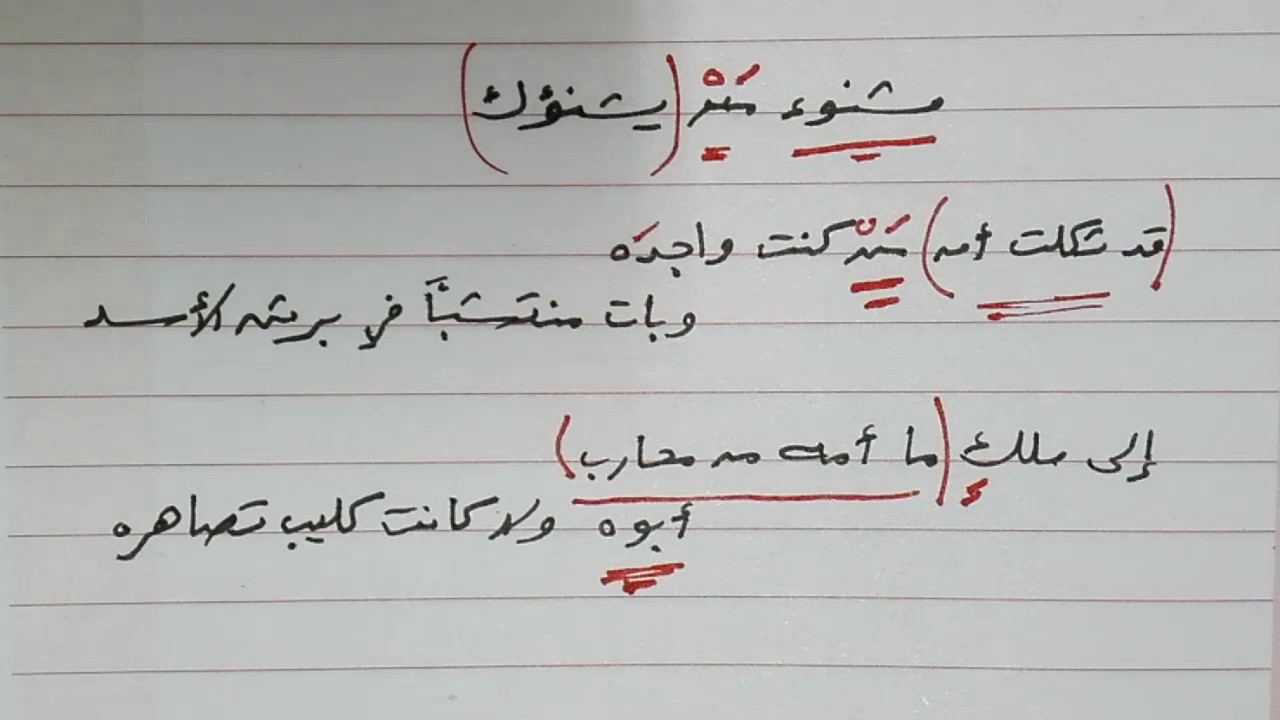 مشنوء مَنْ (يشنؤك)
(قد ثكلت أمه) مَنْ كنت واجدَه
وبات منتشباً في برثن الأسد
إلى ملكٍ (ما أمه من محارب)
أبوه ولا كانت كليب تصاهره